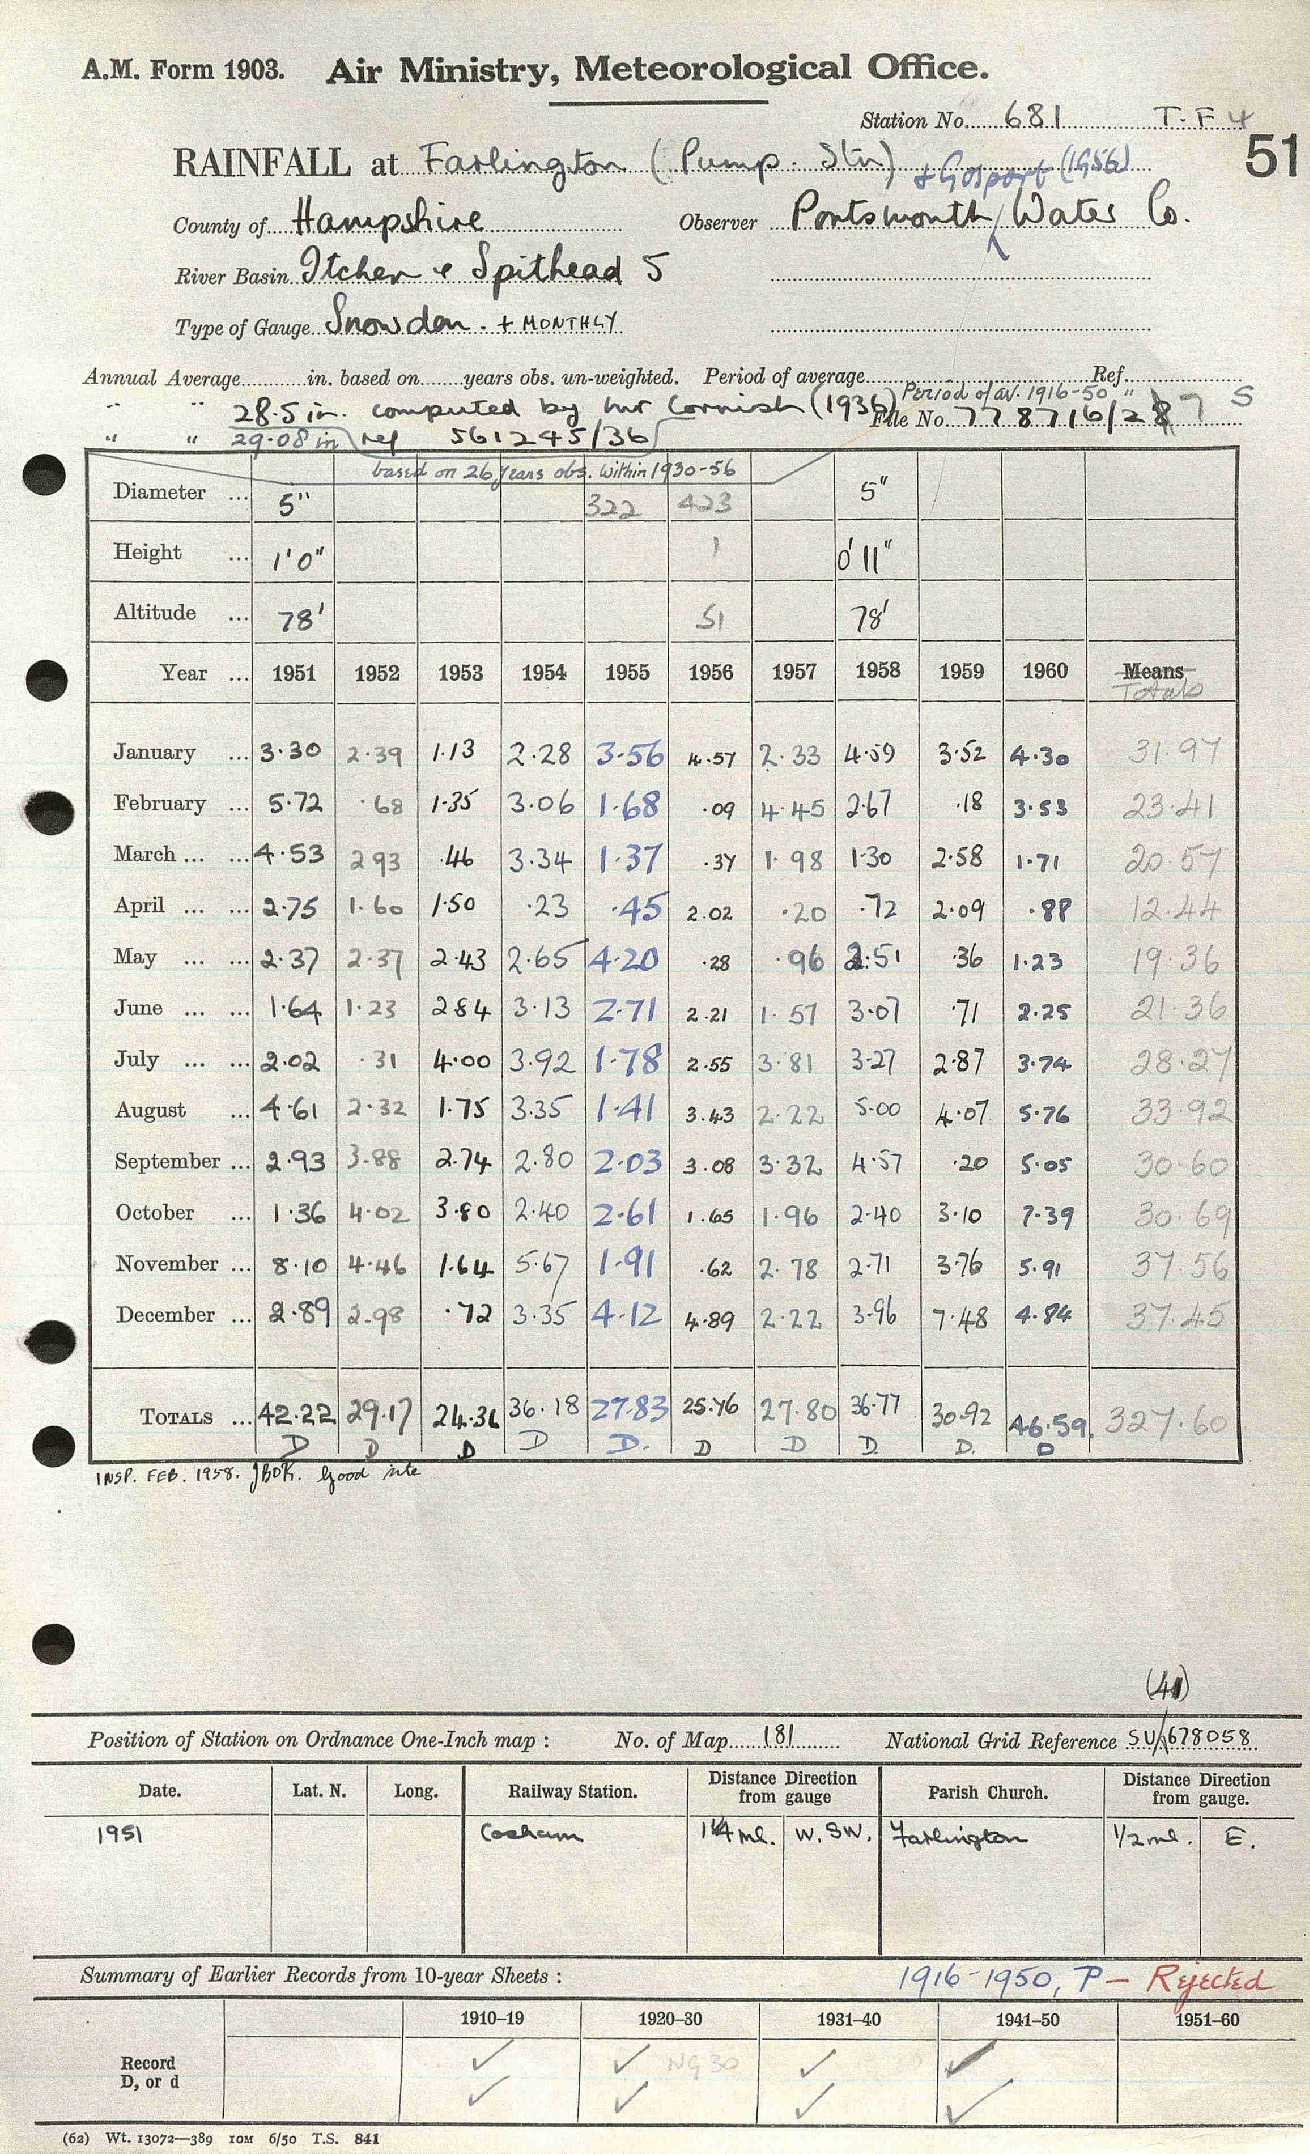 A.M. Form 1903. Air Ministry, Meteorological Office.
Station No. 681 T.F 4
RAINFALL at Farlington (Pump. Stn) + Gosport (1956) 51
County of Hampshire Observer Portsmouth Water Co.
River Basin Itchen & Spithead 5
Type of Gauge Snowdon. + MONTHLY
Annual Average in. based on years obs. un-weighted. Period of average Ref.
" " 28.5 in. computed by Mr Cornish (1936) Period of av. 1916-50 " S
File No. 778716/2 7
" " 29.08 in ref 561245/36
based on 26 years obs. within 1930-56
Diameter ... 5" 322 423 5"
Height ... 1'0" 1 0'11"
Altitude ... 78' 51 78'
Year ... 1951 1952 1953 1954 1955 1956 1957 1958 1959 1960 Means Totals
January ... 3.30 2.39 1.13 2.28 3.56 4.57 2.33 4.59 3.52 4.30 31.97
February ... 5.72 .68 1.35 3.06 1.68 .09 4.45 2.67 .18 3.53 23.41
March ... ... 4.53 2.93 .46 3.34 1.37 .37 1.98 1.30 2.58 1.71 20.57
April ... ... 2.75 1.60 1.50 .23 .45 2.02 .20 .72 2.09 .88 12.44
May ... ... 2.37 2.37 2.43 2.65 4.20 .28 .96 2.51 .36 1.23 19.36
June ... ... 1.64 1.23 2.84 3.13 2.71 2.21 1.57 3.07 .71 2.25 21.36
July ... ... 2.02 .31 4.00 3.92 1.78 2.55 3.81 3.27 2.87 3.74 28.27
August ... 4.61 2.32 1.75 3.35 1.41 3.43 2.22 5.00 4.07 5.76 33.92
September ... 2.93 3.88 2.74 2.80 2.03 3.08 3.32 4.57 .20 5.05 30.60
October ... 1.36 4.02 3.80 2.40 2.61 1.65 1.96 2.40 3.10 7.39 30.69
November ... 8.10 4.46 1.64 5.67 1.91 .62 2.78 2.71 3.76 5.91 37.56
December ... 2.89 2.98 .72 3.35 4.12 4.89 2.22 3.96 7.48 4.84 37.45
TOTALS ... 42.22 29.17 24.36 36.18 27.83 25.76 27.80 36.77 30.92 46.59. 327.60
D D D D D. D D D. D. D
INSP. FEB. 1958. JBOK. Good site
(41)
Position of Station on Ordnance One-Inch map : No. of Map 181 National Grid Reference SU/678058
Date. Lat. N. Long. Railway Station. Distance from gauge Direction Parish Church. Distance from gauge. Direction
1951 Cosham 1¼ ml. W.SW. Farlington 1/2 ml. E.
Summary of Earlier Records from 10-year Sheets : 1916-1950, P – Rejected
1910–19 1920–30 1931–40 1941–50 1951–60
Record ✓ ✓ NG30 ✓ ✓
D, or d ✓ ✓ ✓ ✓
(62) Wt. 13072—389 10M 6/50 T.S. 841